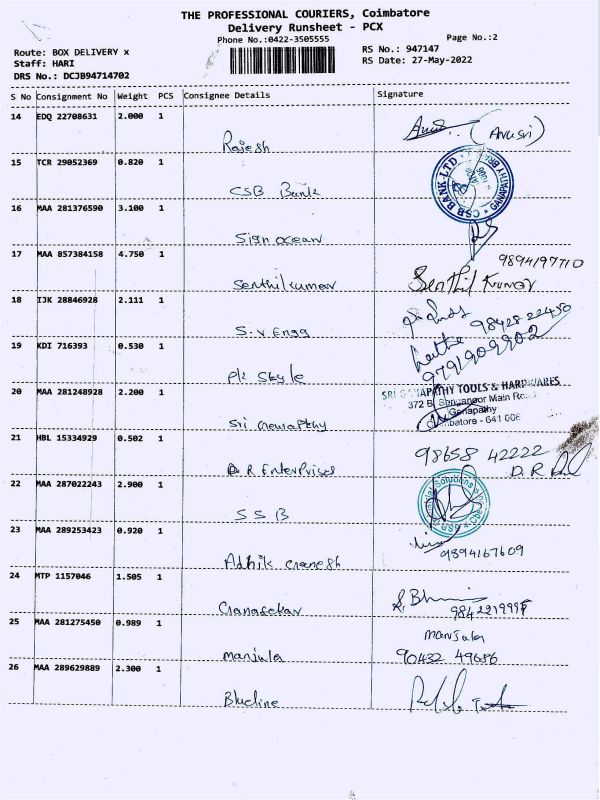 THE PROFESSIONAL COURIERS, Coimbatore
Delivery Runsheet - PCX
Phone No.:0422-3505555
Page No.:2
Route: BOX DELIVERY x
Staff: HARI
DRS No.: DCJB94714702
RS No.: 947147
RS Date: 27-May-2022
S No Consignment No Weight PCS Consignee Details Signature
14 EDQ 22708631 2.000 1
Rajesh
(Anusri)
15 TCR 29052369 0.820 1
CSB Bank
CSB BANK LTD
GANAPATHY
16 MAA 281376590 3.100 1
Sign ocean
17 MAA 857384158 4.750 1
Senthilkumar
9894197710
Senthil Kumar
18 IJK 28846928 2.111 1
S.V Engg
9842822450
19 KDI 716393 0.530 1
Pk Skyle
9791909902
20 MAA 281248928 2.200 1
Sri Ganapathy
SRI GANAPATHY TOOLS & HARDWARES
372 B, Main
Ganapathy
641 006
21 HBL 15334929 0.502 1
D R Enterprises
98658 42222
D.R
22 MAA 287022243 2.900 1
S S B
Solutions
23 MAA 289253423 0.920 1
Adhik Ganesh
9894167609
24 MTP 1157046 1.505 1
Ganasekar
25 MAA 281275450 0.989 1
Manjula
Manjula
90432 49686
26 MAA 289629889 2.300 1
Blueline